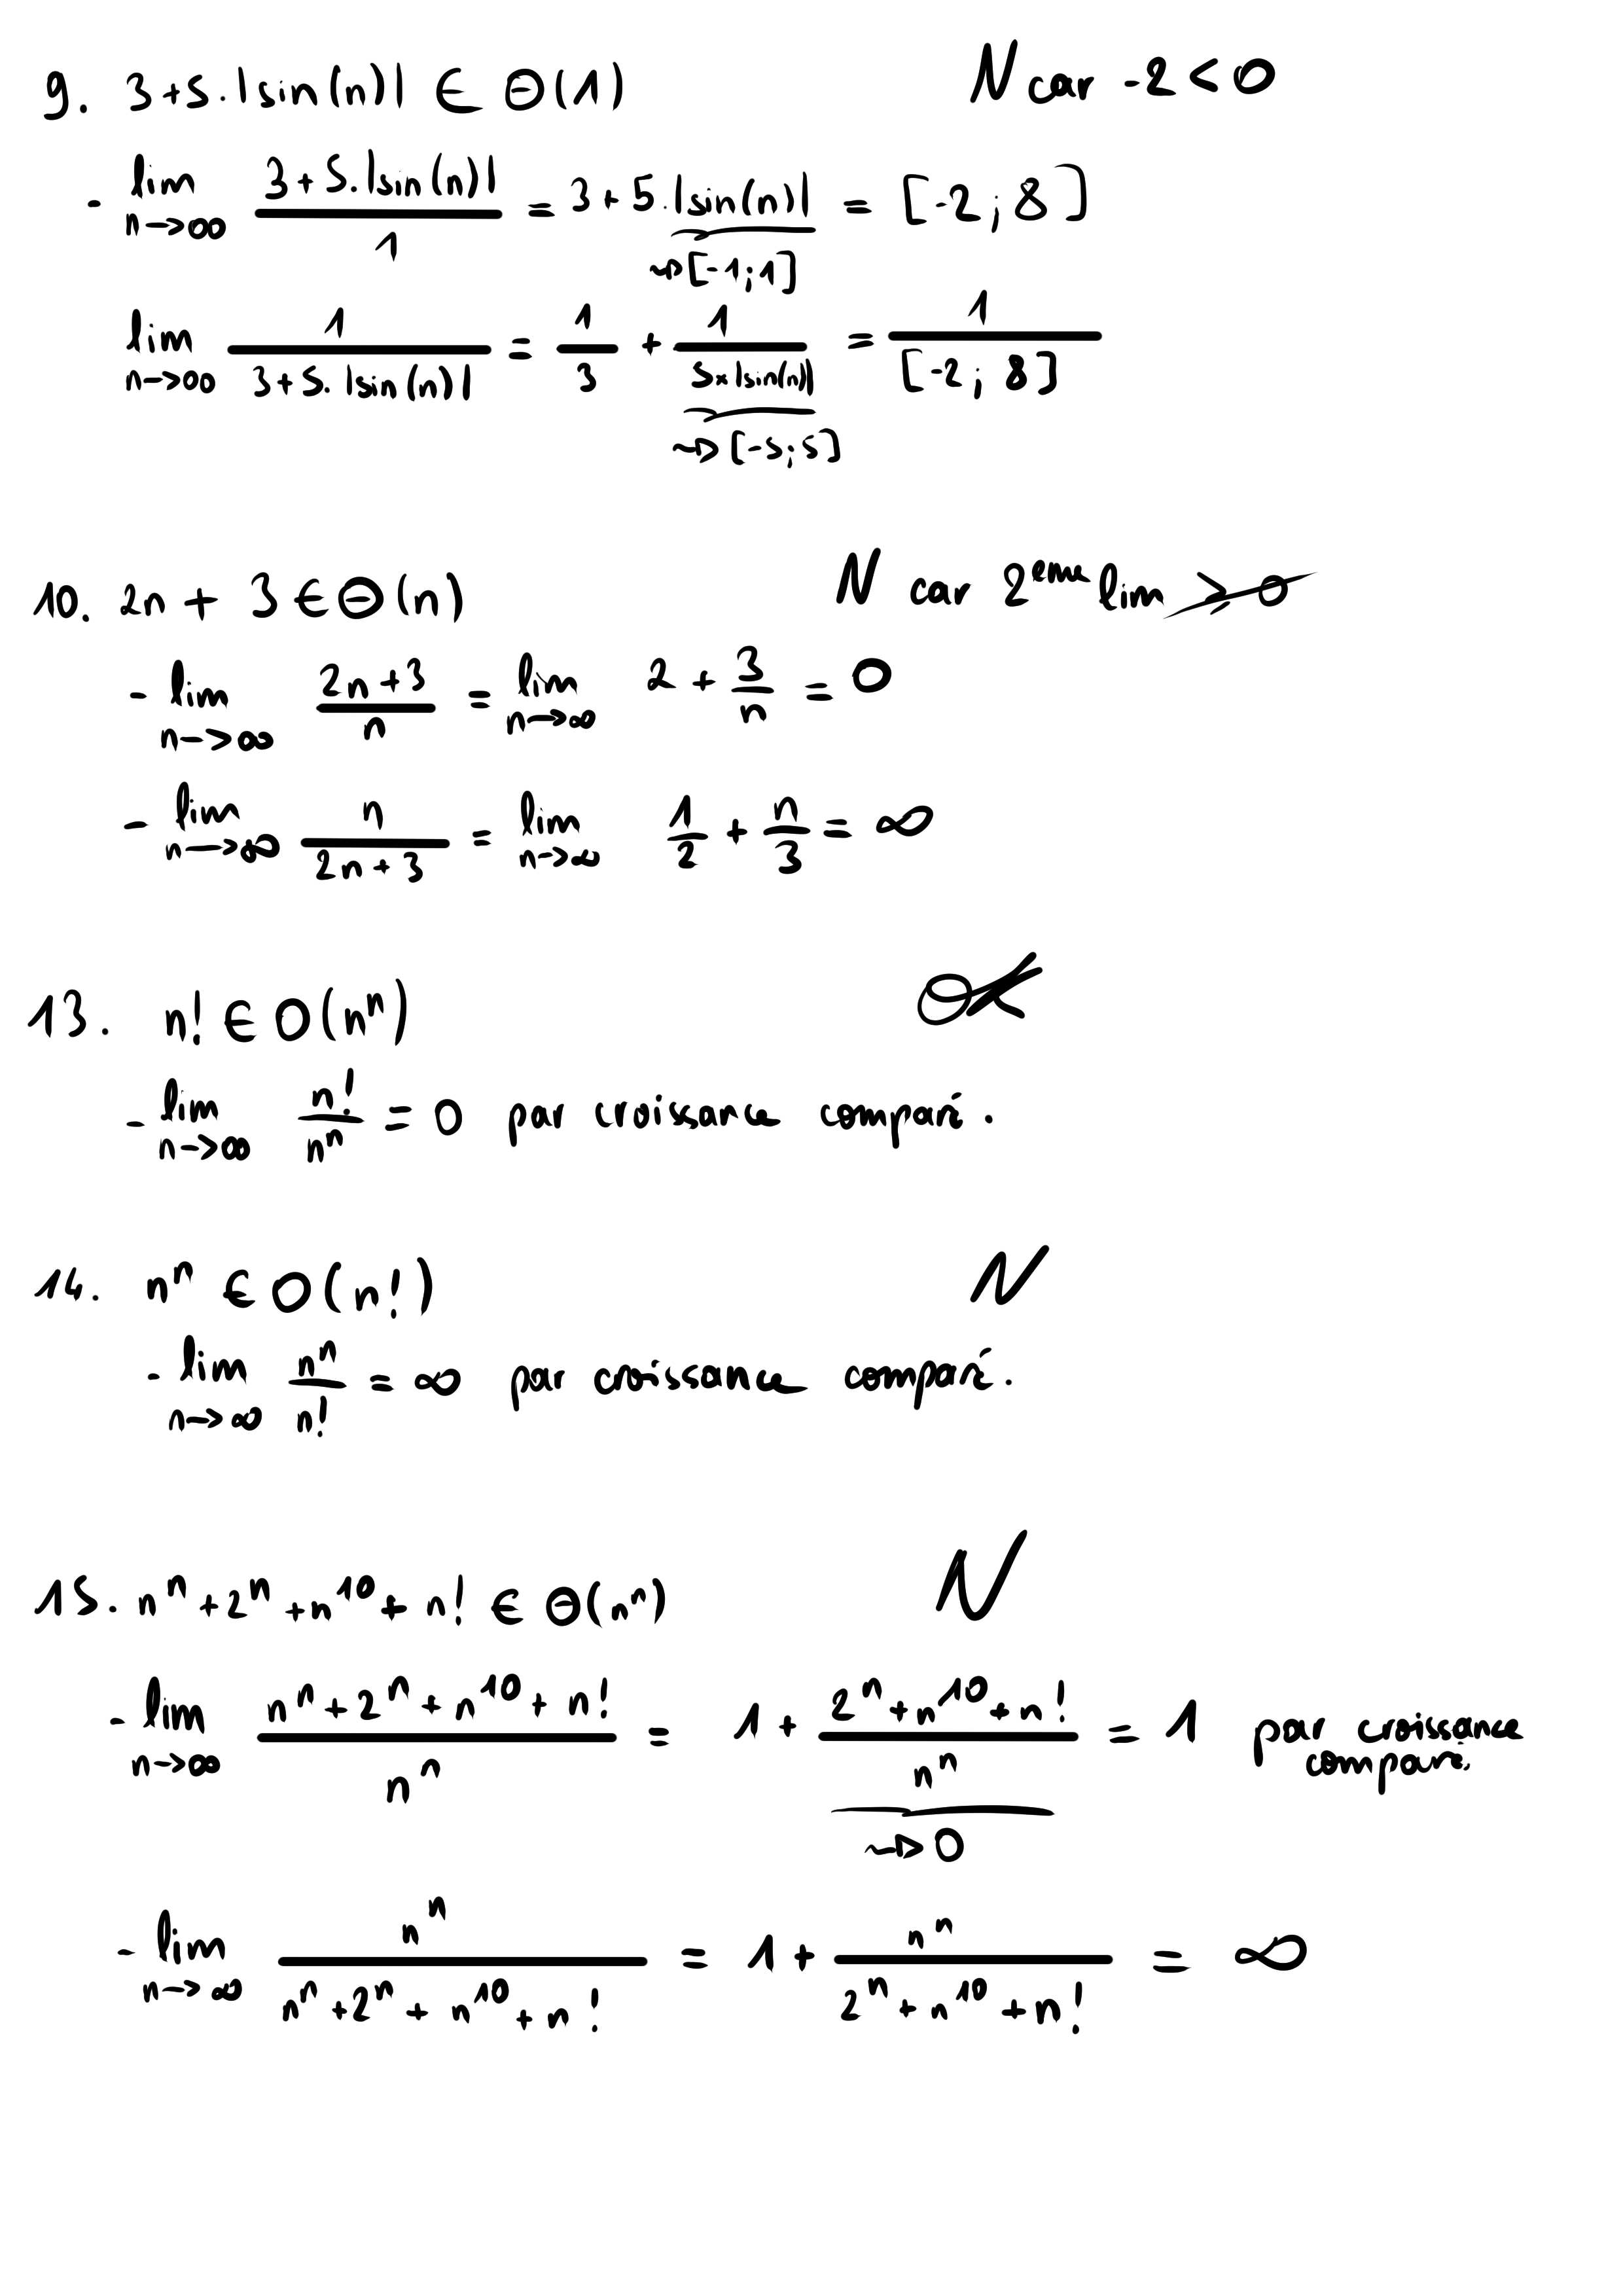 9. 3 + 5 . |sin(n)| ∈ Θ(1) N car -2 < 0
- lim n→∞ (3 + 5 . |sin(n)|) / 1 = 3 + 5 . |sin(n)| = [-2 ; 8]
→ [-1 ; 1]
lim n→∞ 1 / (3 + 5 . |sin(n)|) = 1/3 + 1 / (5 × |sin(n)|) = 1 / [-2 ; 8]
→ [-5 ; 5]
10. 2n + 3 ∈ Θ(n) N car 2ème lim > 0
- lim n→∞ (2n + 3) / n = lim n→∞ 2 + 3/n = 0
- lim n→∞ n / (2n + 3) = lim n→∞ 1/2 + n/3 = ∞
13. n! ∈ O(nⁿ) OK
- lim n→∞ n! / nⁿ = 0 par croissance comparé.
14. nⁿ ∈ O(n!) N
- lim n→∞ nⁿ / n! = ∞ par croissance comparé.
15. nⁿ + 2ⁿ + n¹⁰ + n! ∈ Θ(nⁿ) N
- lim n→∞ (nⁿ + 2ⁿ + n¹⁰ + n!) / nⁿ = 1 + (2ⁿ + n¹⁰ + n!) / nⁿ = 1 par croissance
comparé.
→ 0
- lim n→∞ nⁿ / (nⁿ + 2ⁿ + n¹⁰ + n!) = 1 + nⁿ / (2ⁿ + n¹⁰ + n!) = ∞